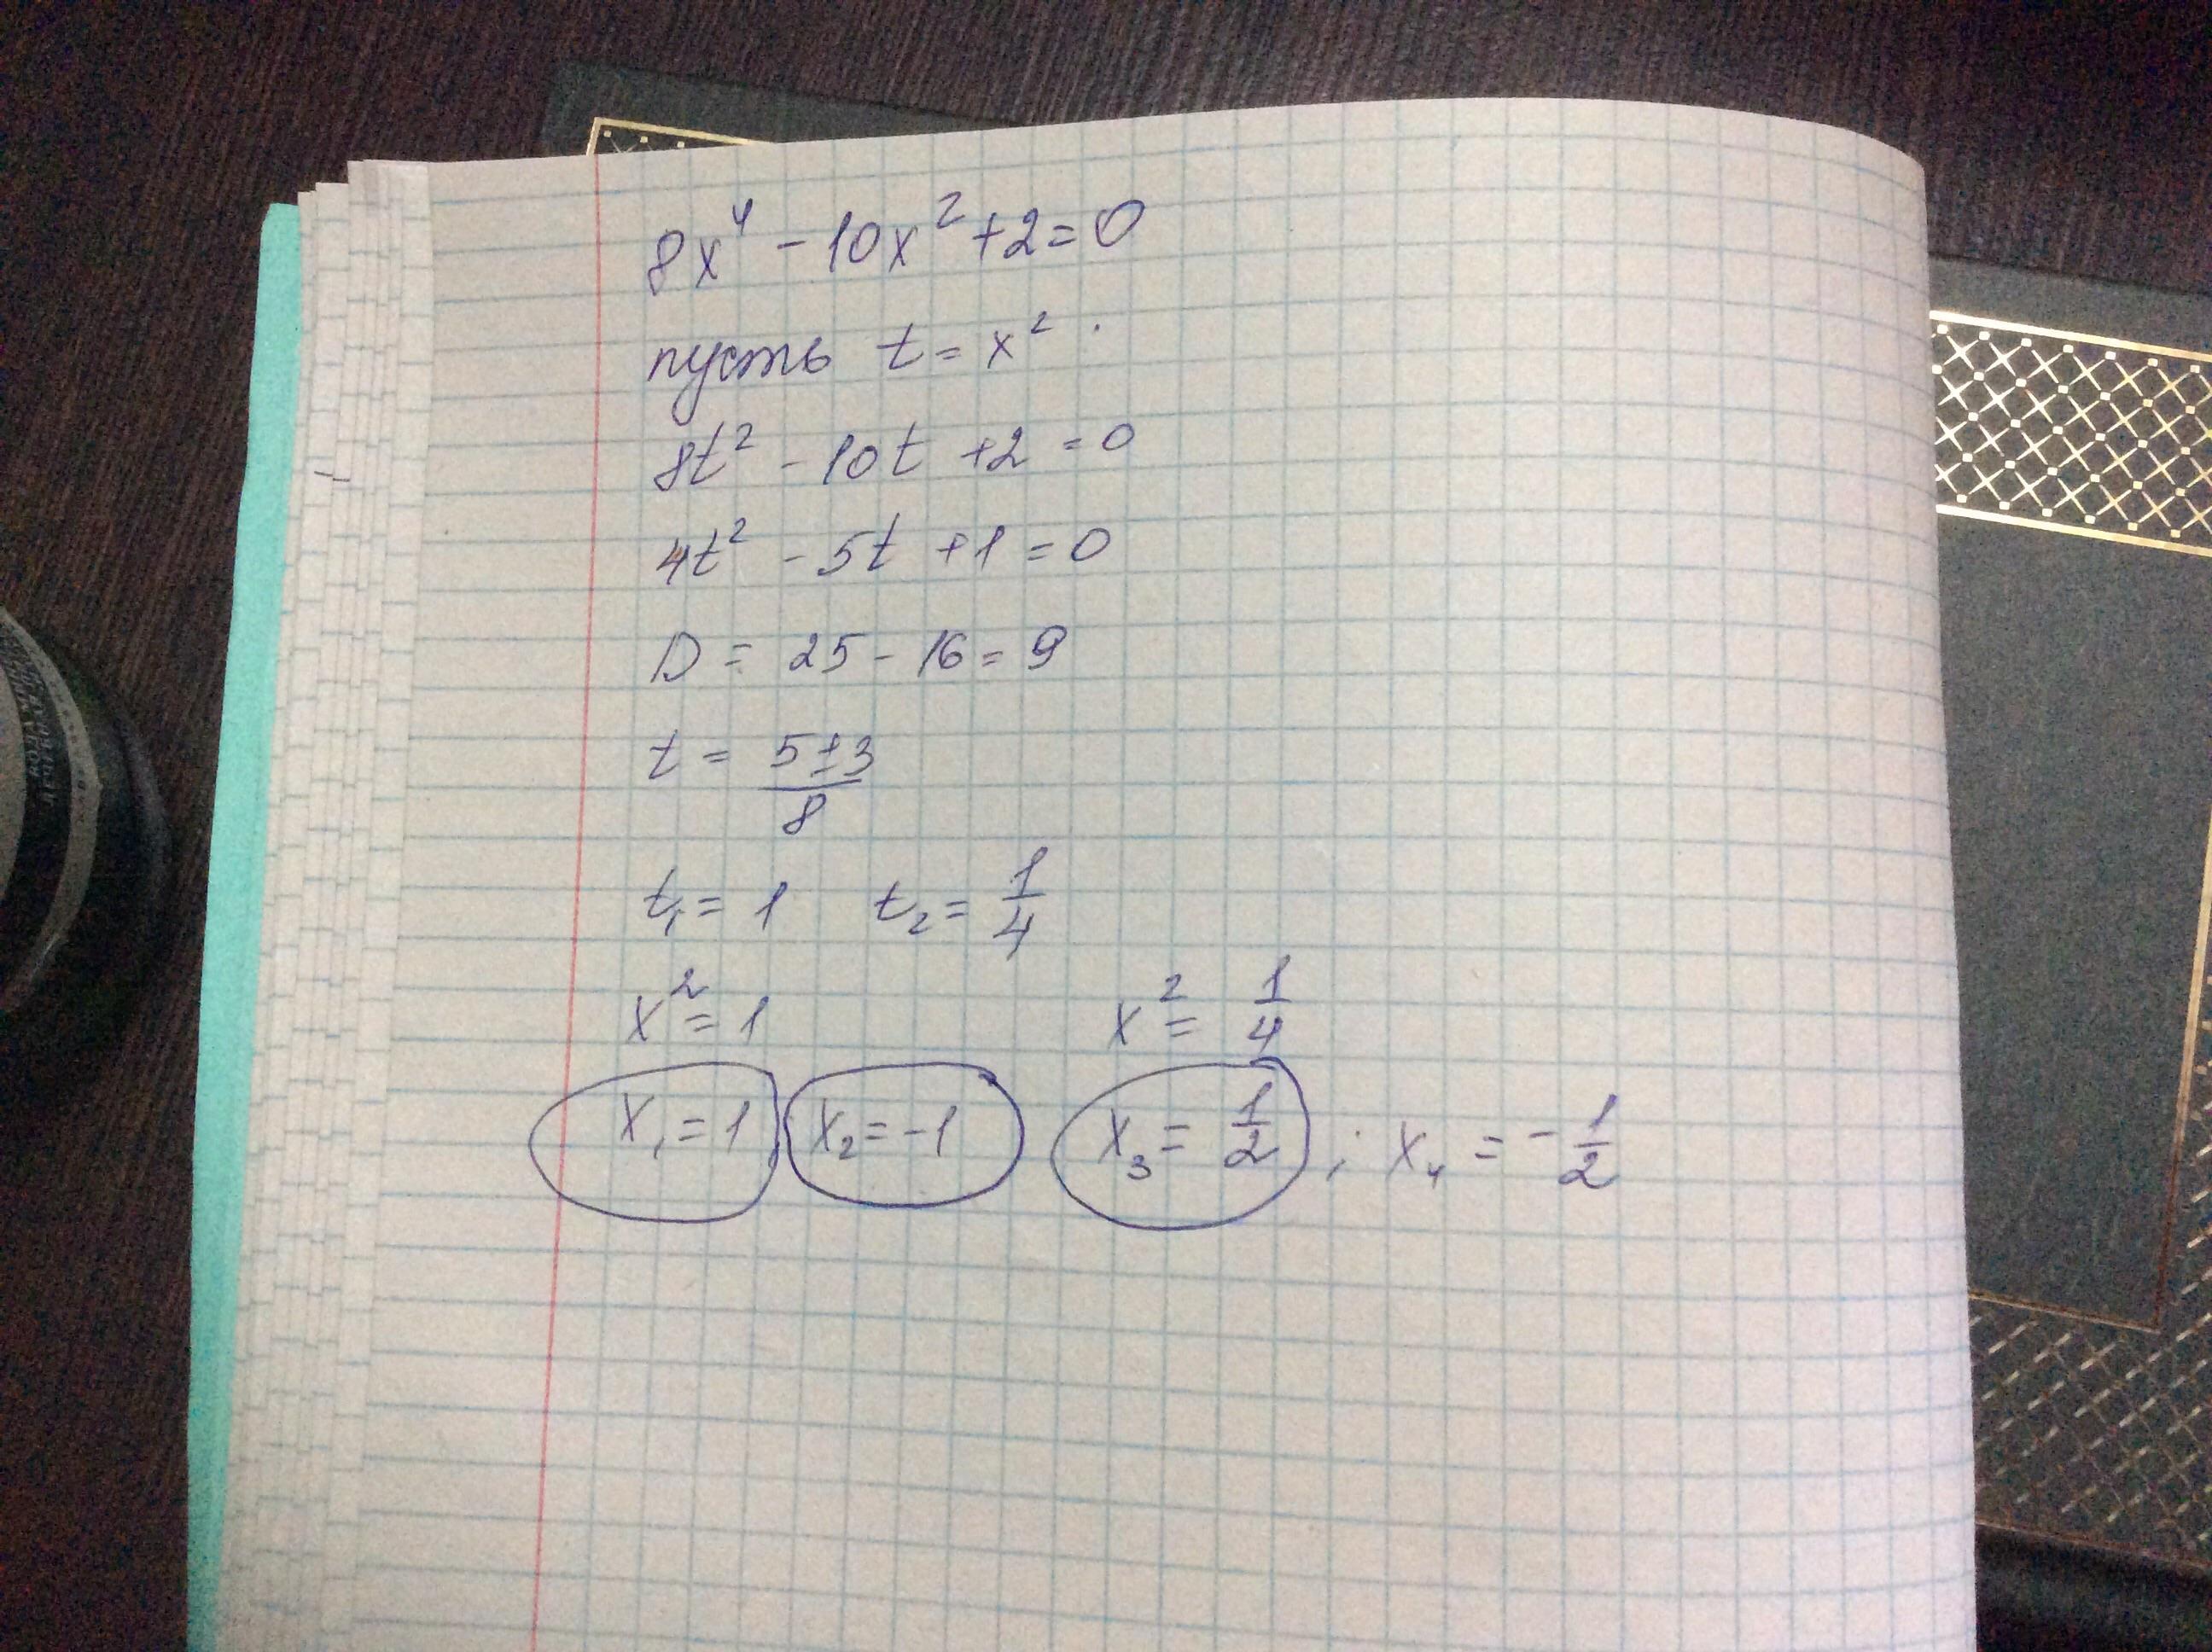 8x⁴ - 10x² + 2 = 0
пусть t = x²
8t² - 10t + 2 = 0
4t² - 5t + 1 = 0
D = 25 - 16 = 9
t = (5 ± 3)/8
t₁ = 1 t₂ = 1/4
x² = 1 x² = 1/4
x₁ = 1 x₂ = -1 x₃ = 1/2 ; x₄ = -1/2